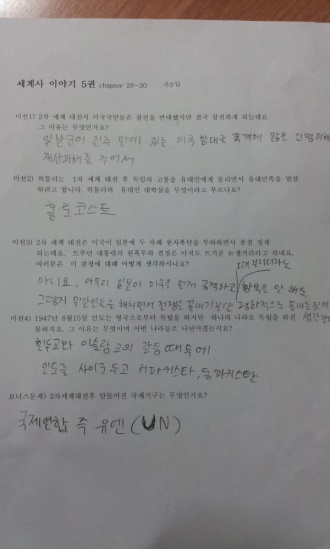 세계사 이야기 5권 chapter 28-30
미션1) 2차 세계 대전시 미국국민들은 참전을 반대했지만 결국 참전하게 되는데요
그 이유는 무엇인가요?
일본군이 진주 만에 있는 미국 함대를 폭격해 많은 인명피해
재산피해를 주어서
미션2) 히틀러는 1차 세계 대전 후 독일의 고통을 유태인에게 돌리면서 유태민족을 말살
하려고 합니다. 히틀러의 유태인 대학살을 무엇이라고 부르나요?
홀로코스트
미션3) 2차 세계 대전은 미국이 일본에 두 차례 원자폭탄을 투하하면서 종결 짓게
되는데요. 트루먼 대통령의 원폭투하 결정은 아직도 뜨거운 논쟁거리라고 하네요.
여러분은 이 결정에 대해 어떻게 생각하시나요?
아니요. 아무리 일본이 미국을 먼저 공격하고 항복은 안 해도
그렇게 일반인들을 해치면서 전쟁을 끝내기보단 평화적으로 끝내는
미션4) 1947년 8월15일 인도는 영국으로부터 독립을 하지만 하나의 나라로 독립을 하진
못하지요. 그 이유는 무엇이며 어떤 나라들로 나뉘어졌는지요?
힌두교와 이슬람교의 갈등때문에
인도를 사이에 두고 서파키스탄, 동파키스탄
보너스문제) 2차세계대전후 만들어진 국제기구는 무엇인가요?
국제연합 즉 유엔(UN)